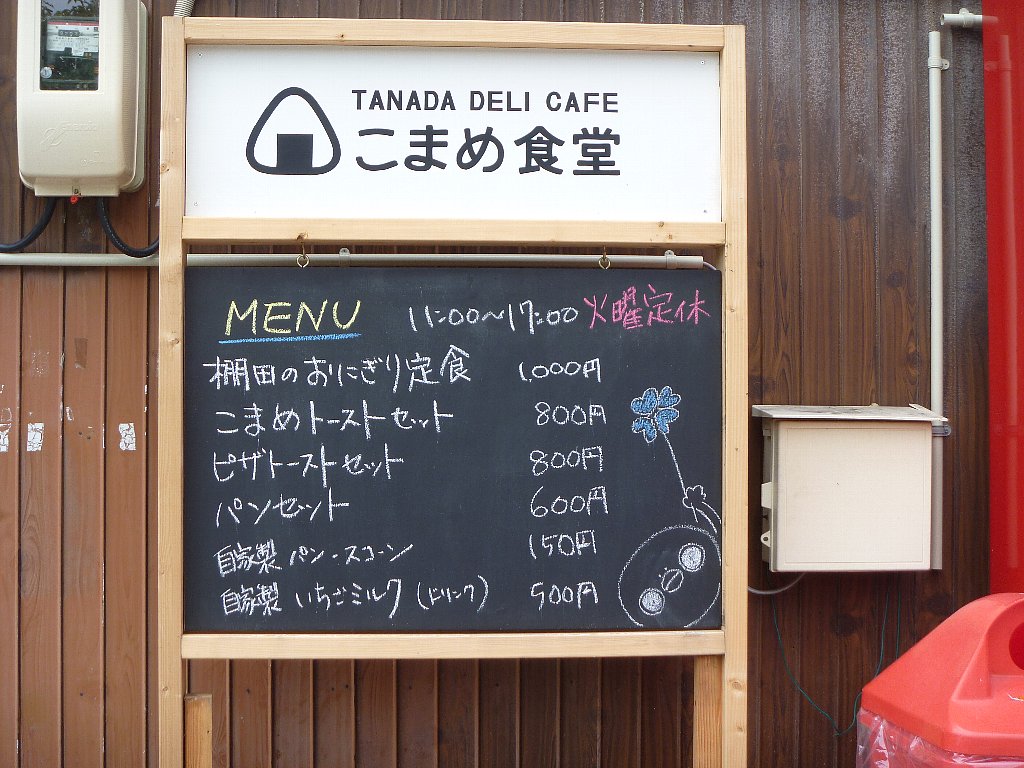 TANADA DELI CAFE
こまめ食堂
MENU 11:00～17:00 火曜定休
棚田のおにぎり定食 1,000円
こまめトーストセット 800円
ピザトーストセット 800円
パンセット 600円
自家製 パン・スコーン 150円
自家製 いちごミルク (ドリンク) 500円